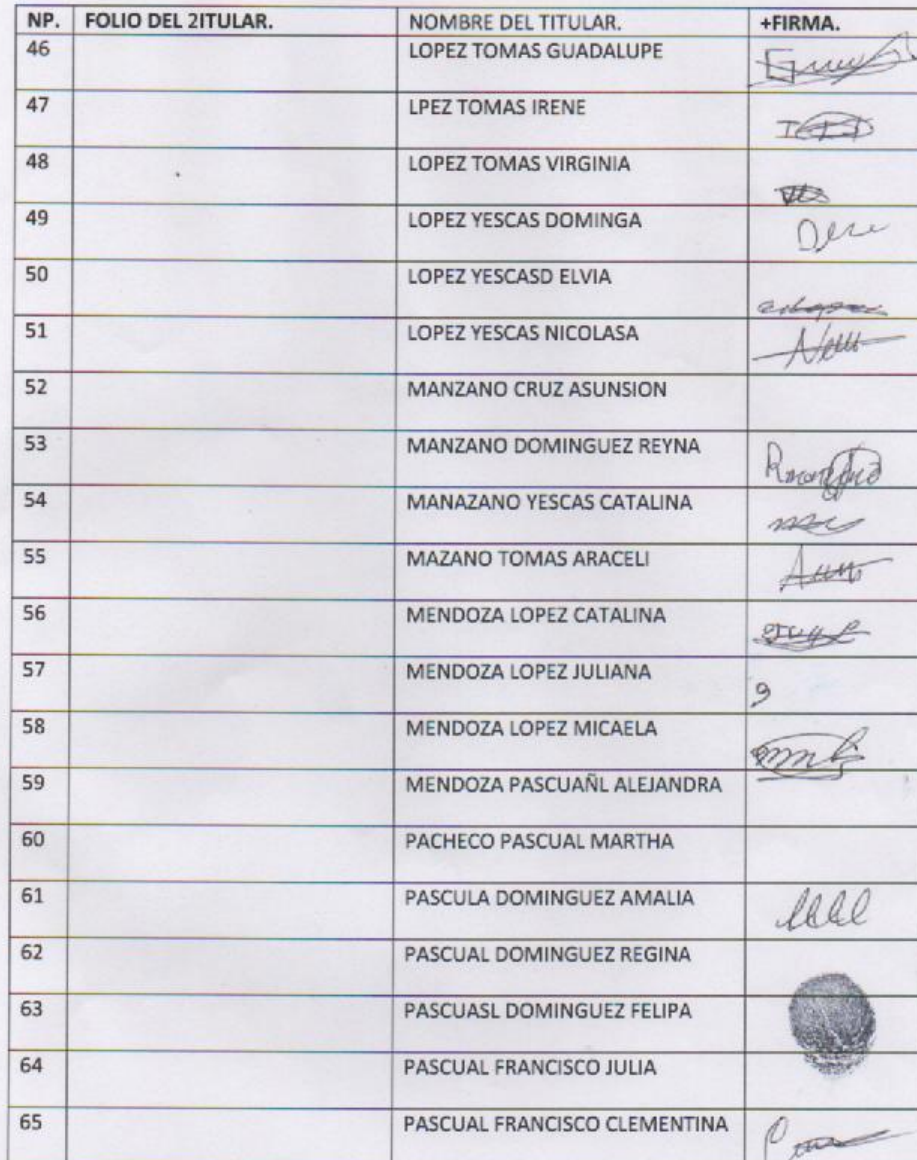 NP. FOLIO DEL 2ITULAR. NOMBRE DEL TITULAR. +FIRMA.
46 LOPEZ TOMAS GUADALUPE
47 LPEZ TOMAS IRENE
48 LOPEZ TOMAS VIRGINIA
49 LOPEZ YESCAS DOMINGA
50 LOPEZ YESCASD ELVIA
51 LOPEZ YESCAS NICOLASA
52 MANZANO CRUZ ASUNSION
53 MANZANO DOMINGUEZ REYNA
54 MANAZANO YESCAS CATALINA
55 MAZANO TOMAS ARACELI
56 MENDOZA LOPEZ CATALINA
57 MENDOZA LOPEZ JULIANA
58 MENDOZA LOPEZ MICAELA
59 MENDOZA PASCUAÑL ALEJANDRA
60 PACHECO PASCUAL MARTHA
61 PASCULA DOMINGUEZ AMALIA
62 PASCUAL DOMINGUEZ REGINA
63 PASCUASL DOMINGUEZ FELIPA
64 PASCUAL FRANCISCO JULIA
65 PASCUAL FRANCISCO CLEMENTINA